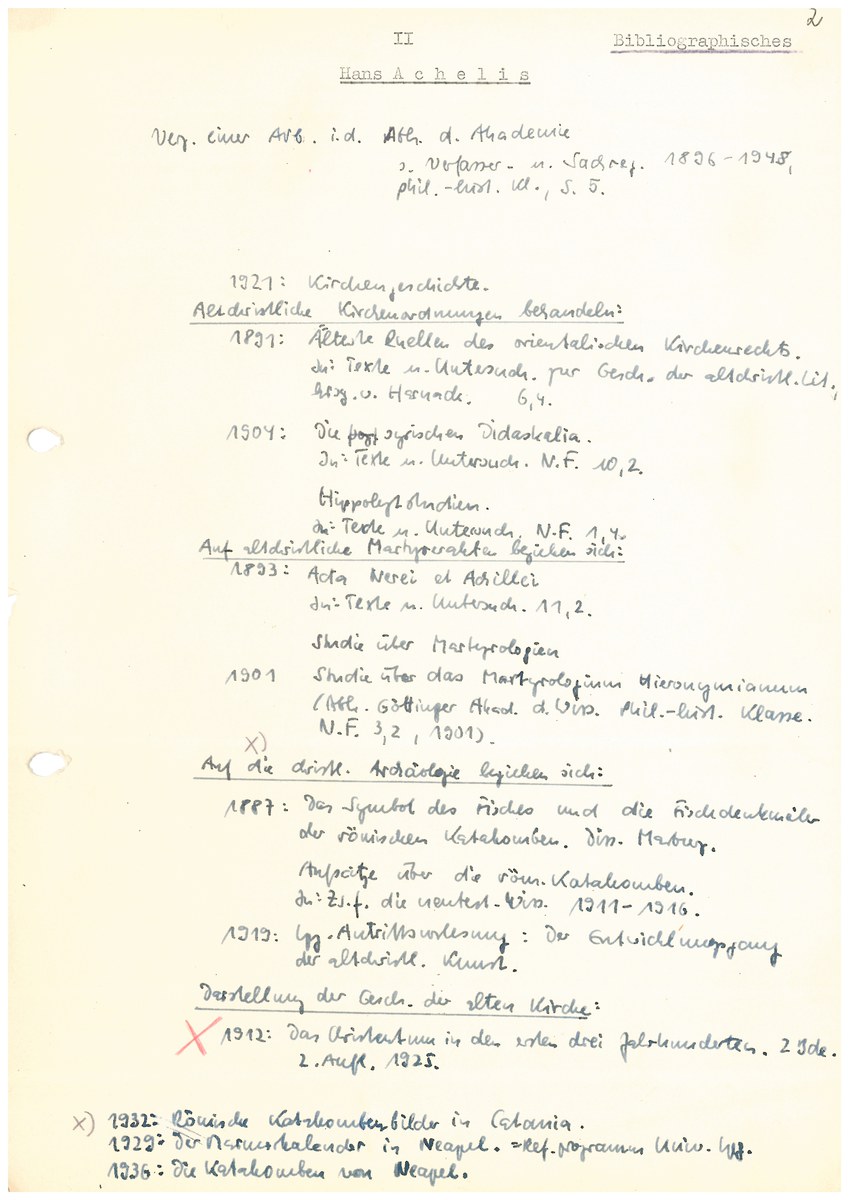 2
II
Bibliographisches
Hans A c h e l i s
Verz. einer Arb. i.d. Abh. d. Akademie
s. Verfasser- u. Sachreg. 1896-1948,
phil.-hist. Kl., S. 5.
1921: Kirchengeschichte.
Altchristliche Kirchenordnungen behandeln:
1891: Älteste Quellen des orientalischen Kirchenrechts.
In: Texte u. Untersuch. zur Gesch. der altchristl. Lit.,
hrsg. v. Harnack. 6,4.
1904: Die syrischen Didaskalia.
In: Texte u. Untersuch. N.F. 10,2.
Hippolytstudien.
In: Texte u. Untersuch. N.F. 1,4.
Auf altchristliche Martyrerakten beziehen sich:
1893: Acta Nerei et Achillei
In: Texte u. Untersuch. 11,2.
Studie über Martyrologien
1901 Studie über das Martyrologium Hieronymianum
(Abh. Göttinger Akad. d. Wiss. Phil.-hist. Klasse.
N.F. 3,2, 1901).
x)
Auf die christl. Archäologie beziehen sich:
1887: Das Symbol des Fisches und die Fischdenkmäler
der römischen Katakomben. Diss. Marburg.
Aufsätze über die röm. Katakomben.
In: Zs. f. die neutest. Wiss. 1911-1916.
1919: Lpz. Antrittsvorlesung: Der Entwicklungsgang
der altchristl. Kunst.
Darstellung der Gesch. der alten Kirche:
X 1912: Das Christentum in den ersten drei Jahrhunderten. 2 Bde.
2. Aufl. 1925.
x) 1932: Römische Katakombenbilder in Catania.
1929: Der Marmorkalender in Neapel. =Ref.programm Univ. Lpz.
1936: Die Katakomben von Neapel.